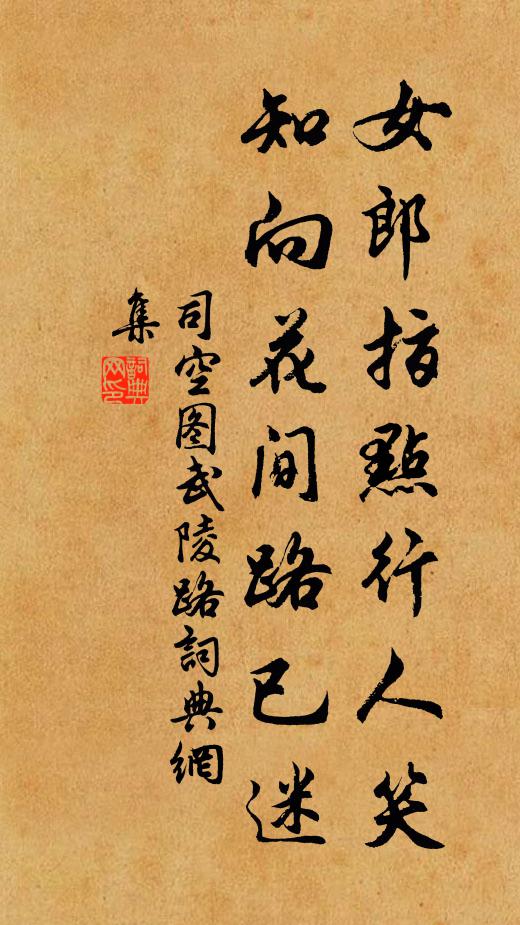 女郎指點行人笑
知向花間路已迷
司空图武陵路詞典網
集
詞典
网印